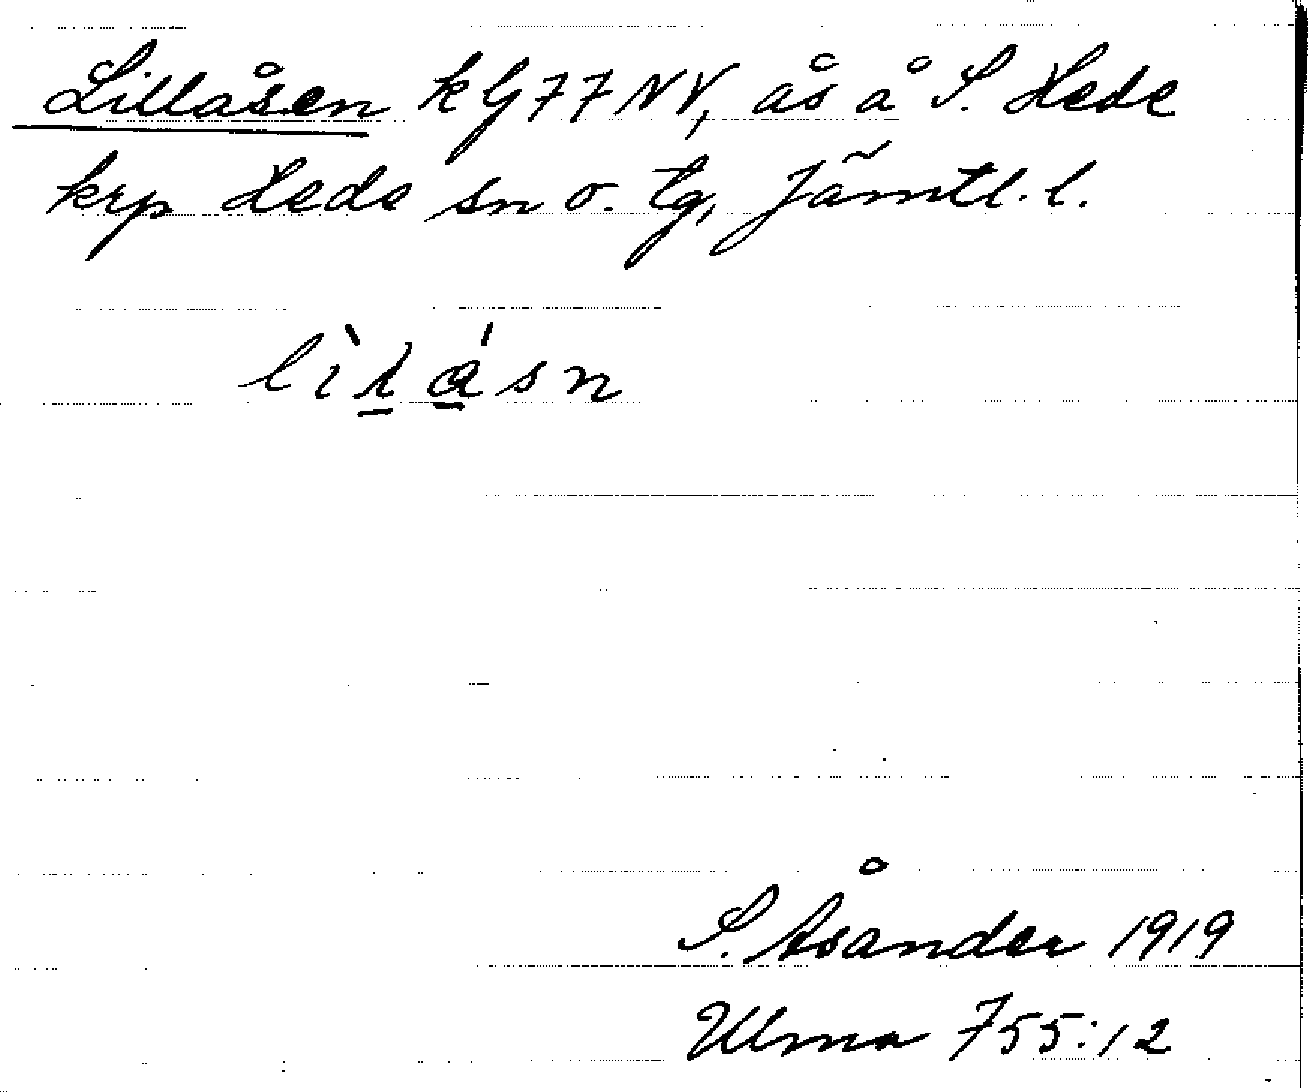 Lillåsen kG77NV, ås å S. Hede
krp Hede sn o. tg, Jämtl. l.
S. Åsander 1919
Ulma 755:12